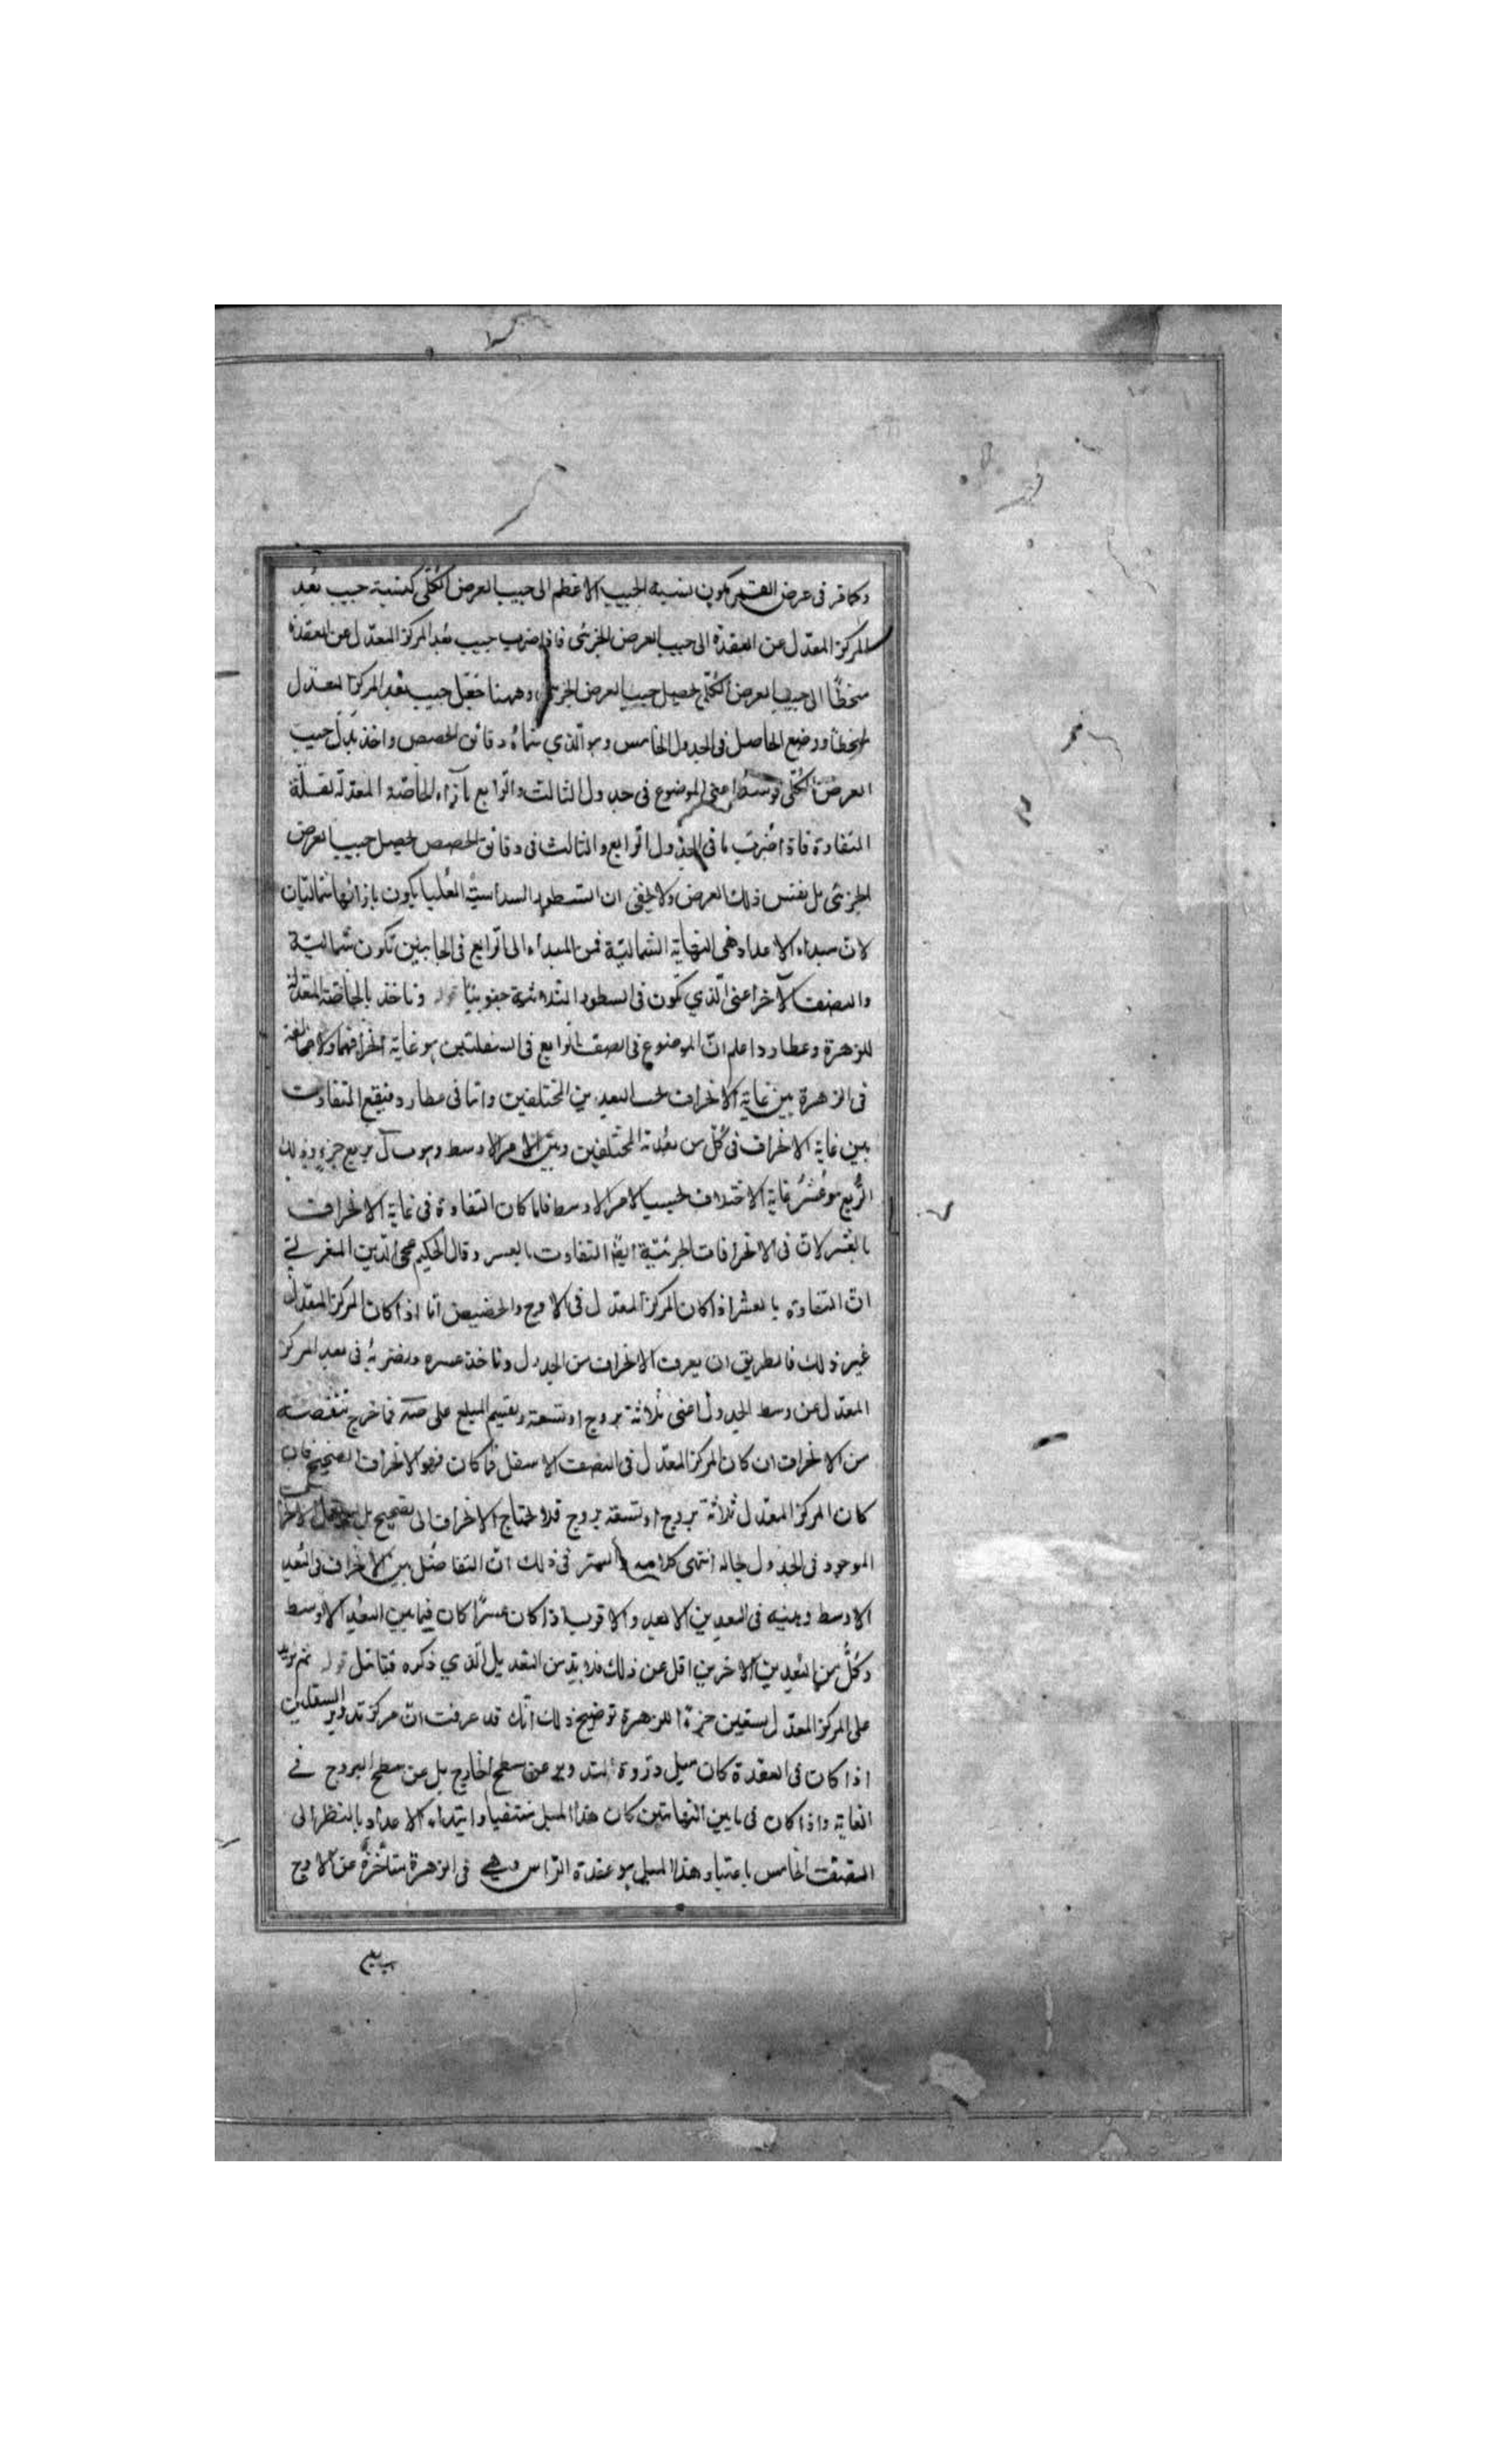 وكما مر فى عرض القمر يكون نسبة الجيب الاعظم الى جيب العرض الكلى كنسبة جيب بعد
المركز المعدل عن العقدة الى جيب العرض الجزئى فاذا ضرب جيب بعد المركز المعدل عن العقدة
منحطا الى جيب العرض الكلى يحصل جيب العرض الجزئى وههنا جعل جيب بعد المركز المعدل
منحطا ووضع الحاصل فى الجدول الخامس وهو الذي سماه دقائق الحصص واخذ بدل جيب
العرض الكلى قوسه اعنى الموضوع فى جدول الثالث والرابع بازاء الخاصة المعدلة لقلة
التفاوت فاذا ضرب ما فى الجدول الرابع والثالث فى دقائق الحصص يحصل جيب العرض
الجزئى بل نفس ذلك العرض ولا يخفى ان السطور السداسية العليا يكون بازائها شماليتان
لان مبداء الاعداد هى النهاية الشمالية فمن المبداء الى الرابع فى الجانبين تكون شمالية
والنصف الآخر اعنى الذي يكون فى السطور جنوبيا قوله وناخذ بالخاصة المعدلة
للزهرة وعطارد اعلم ان الموضوع فى الصف الرابع فى السفليتين هو غاية انحرافهما ولا مخالفة
فى الزهرة بين غاية الانحراف بحسب البعدين المختلفين واما فى عطارد فيقع التفاوت
بين غاية الانحراف فى كل من بعدية المختلفين وبين الامر الاوسط وهو ربع جزء وذلك
الربع هو عشر غاية الاختلاف بحسب الامر الاوسط فلما كان التفاوت فى غاية الانحراف
بالعشر لان فى الانحرافات الجزئية ايضا التفاوت بالعشر وقال الحكيم محى الدين المغربي
ان التفاوت بالعشر اذا كان المركز المعدل فى الاوج والحضيض اما اذا كان المركز المعدل
غير ذلك فالطريق ان يعرف الانحراف من الجدول وناخذ عشره ونضربه فى بعد المركز
المعدل عن وسط الجدول اعنى ثلاثة بروج او تسعة ونقسم المبلغ على فما خرج ننقصه
من الانحراف ان كان المركز المعدل فى النصف الاسفل فما كان فهو الانحراف الصحيح فان
كان المركز المعدل ثلاثة بروج او تسعة بروج فلا يحتاج الانحراف الى تصحيح بل
الموجود فى الجدول بحاله انتهى كلامه والسر فى ذلك ان التفاضل بين الانحراف فى البعد
الاوسط وبينه فى البعدين الابعد والاقرب اذا كان عشرا كان فيما بين البعد الاوسط
وكل من البعدين الاخرين اقل عن ذلك فلا بد من التعديل الذي ذكره فتامل قوله ثم نزيد
على المركز المعدل بستين جزءا للزهرة توضيح ذلك انك قد عرفت ان مركز تدوير السفليين
اذا كان فى العقدة كان ميل ذروة التدوير عن سطح الخارج بل عن سطح البروج في
الغاية واذا كان فى ما بين النهايتين كان هذا الميل منتفيا وابتداء الاعداد بالنظر الى
الصف الخامس باعتبار هذا الميل هو عقدة الراس وهي فى الزهرة متاخرة عن الاوج